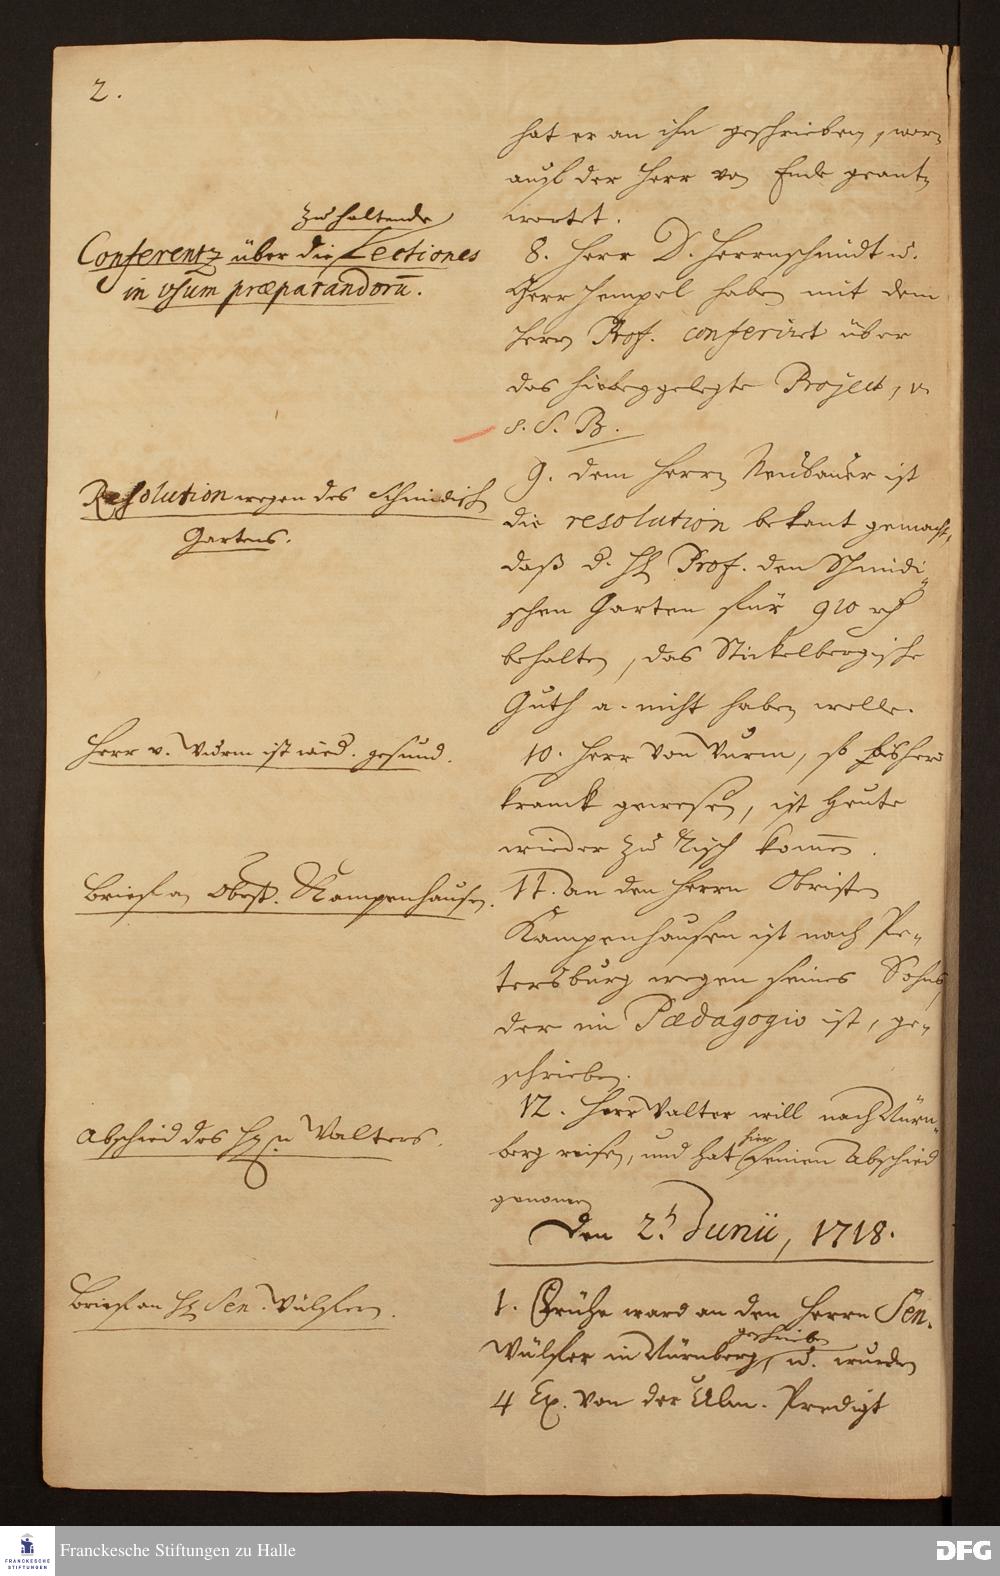 2.
hat er an ihn geschrieben, wor-
auf der Herr von Ende geant-
wortet.
zu haltende
Conferentz über die Lectiones
in usum præparandorū.
8. Herr D. Herrnschmidt u.
Herr Hempel haben mit dem
Herrn Prof. conferiret über
das hiebeygelegte Project, v.
s. S. B.
Resolution wegen des Schmidisch
Gartens.
9. dem Herrn Neubauer ist
die resolution bekant gemacht,
daß d. H Prof. den Schmidi-
schen Garten für 910 rth
behalten, das Stickelbergische
Guth a. nicht haben wolle.
Herr v. Wurm ist wied. gesund.
10. Herr von Wurm, so bisher
kranck gewesen, ist heute
wieder zu Tisch komen.
Brief an Obrist. Kampenhausen.
11. an den Herrn Obristen
Kampenhausen ist nach Pe-
tersburg wegen seines Sohns,
der im Pædagogio ist, ge-
schrieben.
Abschied des Hn Walters.
12. Herr Walter will nach Nürn-
berg reisen, und hat hier seinen Abschied
genomen
Den 2. Junii, 1718.
Brief an H Sen. Wülfern.
1. Frühe ward an den Herrn Sen.
Wülfer in Nürnberg geschrieben, u. wurden
4 Ex. von der Ulm. Predigt
Franckesche Stiftungen zu Halle
FRANCKESCHE
STIFTUNGEN
DFG